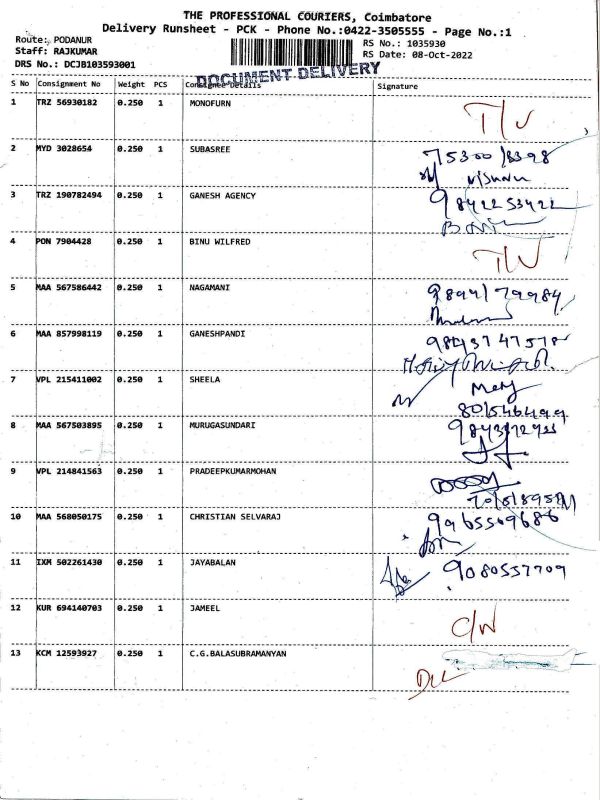 THE PROFESSIONAL COURIERS, Coimbatore
Delivery Runsheet - PCK - Phone No.:0422-3505555 - Page No.:1
Route: PODANUR
RS No.: 1035930
Staff: RAJKUMAR
RS Date: 08-Oct-2022
DRS No.: DCJB103593001
DOCUMENT DELIVERY
S No Consignment No Weight PCS Consignee Details Signature
1 TRZ 56930182 0.250 1 MONOFURN
2 MYD 3028654 0.250 1 SUBASREE
3 TRZ 190782494 0.250 1 GANESH AGENCY
9842253422
4 PON 7904428 0.250 1 BINU WILFRED
5 MAA 567586442 0.250 1 NAGAMANI
6 MAA 857998119 0.250 1 GANESHPANDI
7 VPL 215411002 0.250 1 SHEELA
Mary
8 MAA 567503895 0.250 1 MURUGASUNDARI
9 VPL 214841563 0.250 1 PRADEEPKUMARMOHAN
10 MAA 568050175 0.250 1 CHRISTIAN SELVARAJ
9965509686
11 IXM 502261430 0.250 1 JAYABALAN
9080557709
12 KUR 694140703 0.250 1 JAMEEL
13 KCM 12593927 0.250 1 C.G.BALASUBRAMANYAN